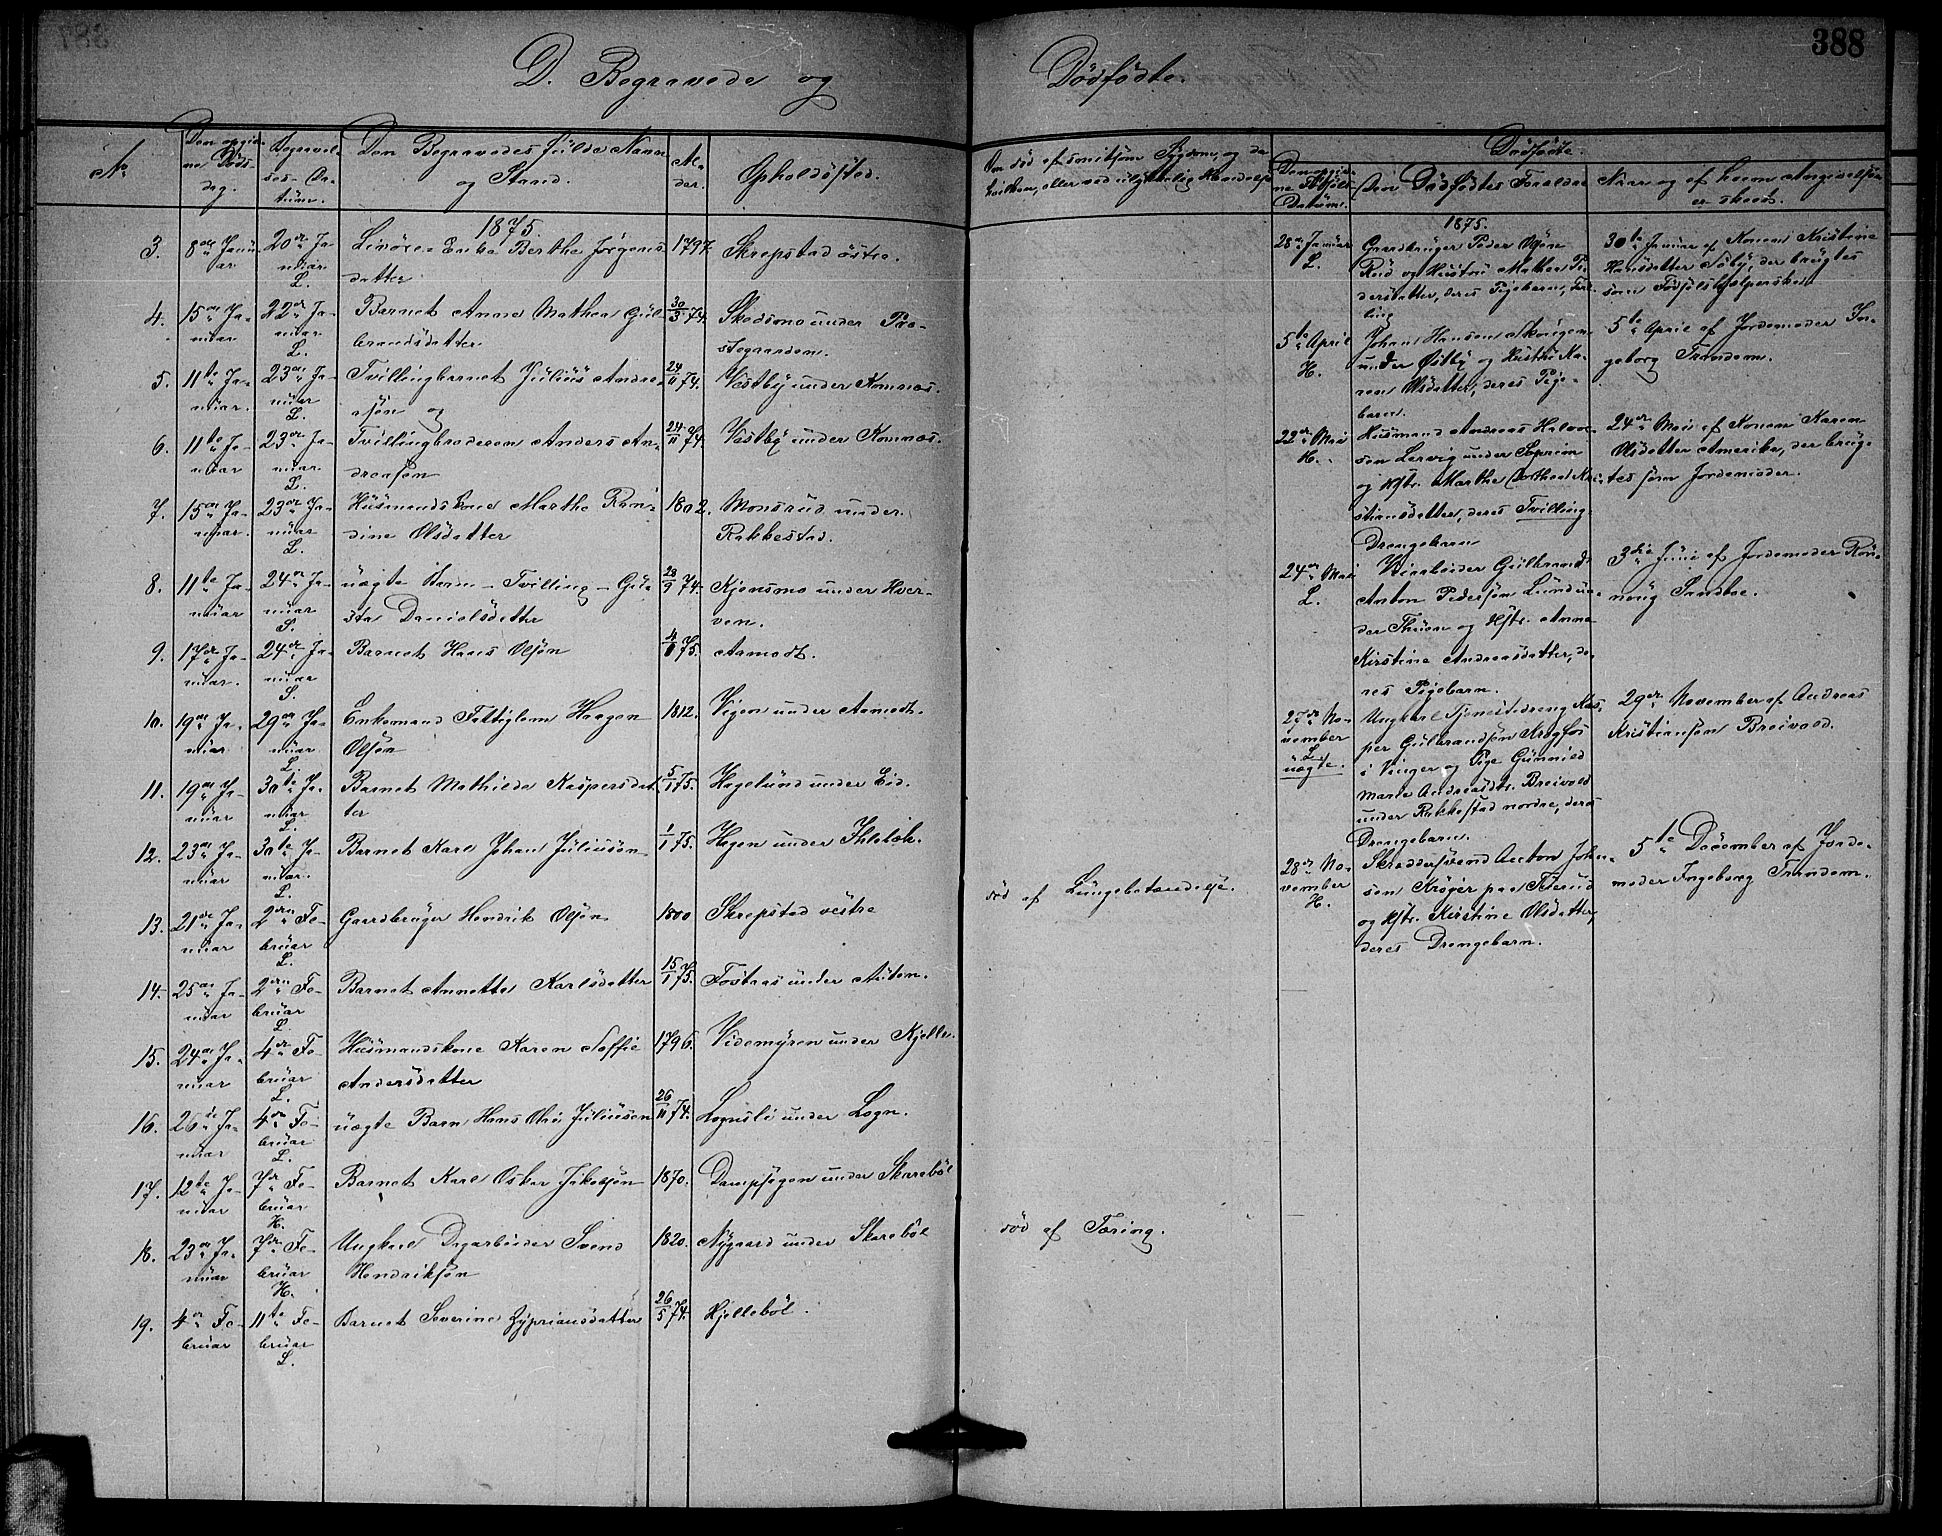 388
D. Begravede og Dødfødte.
No
Den opgivne Dødsdag.
Begravelses-Datum.
Den Begravedes fulde Navn og Stand.
Alder.
Opholdssted.
Om død af smitsom Sygdom, og da hvilken, eller ved ulykkelig Hændelse
Dødfødte.
Den opgivne Fødsels Datum.
Den Dødfødtes Forældre
Naar og af hvem Angivelsen er skeet.
1875.
3. 8de Januar 20de Januar L. Livøre Enke Berthe Jørgensdatter 1797. Skrepstad østre.
4. 15de Januar 22de Januar L. Barnet Anne Mathea Gulbrandsdatter 30/3 74. Skodsmo under Prestegaarden.
5. 11te Januar. 23de Januar L. Tvillingbarnet Julius Andreasøn og 24/11 74. Vestby under Komnæs.
6. 11te Januar 23de Januar. L. Tvillingbroderen Anders Andreasøn 24/11 74. Vestby under Komnæs.
7. 15de Januar. 23de Januar L. Husmandskone Marthe Randine Olsdatter 1802. Monsrud under Rakkestad.
8. 11te Januar 24de Januar S. uægte Barn - Tvilling - Gusta Danielsdatter 28/9 74. Kjensmo under Hverven.
9. 17de Januar. 24de Januar S. Barnet Hans Olsøn 4/1 75. Aamodt.
10. 19de Januar 29de Januar L. Enkemand Fattiglem Haagen Olsøn 1812. Vigen under Aamodt.
11. 19de Januar 30te Januar L. Barnet Mathilde Kaspersdatter 5/1 75. Hagelund under Eid.
12. 23de Januar 30te Januar. L. Barnet Karl Johan Juliusøn 1/1 75. Hagen under
13. 21de Januar 2den Februar L. Gaardbruger Hendrik Olsøn 1800 Skrepstad vestre død af Lungebetændelse.
14. 25de Januar 2den Februar L. Barnet Annette Karlsdatter 15/1 75. Fostaas under Austen.
15. 24de Januar 4de Februar L. Husmandskone Karen Soffie Andersdatter 1796. Videmyren under Kjelle.
16. 26de Januar 4de Februar L. uægte Barn Hans Olai Juliusen 26/11 74. Lognsli under Logn.
17. 12te Januar 7de Februar H. Barnet Karl Oskar Jakobsøn 1870. Dampsagen under Skarebøl
18. 23de Januar 7de Februar H. Ungkarl Dagarbeider Svend Hendriksøn 1820. Nygaard under Skarebøl død af Tæring.
19. 4de Februar 11te Februar L. Barnet Severine Zypriansdatter 26/5 74. Hjellebøl.
1875.
28de Januar L. Gaardbruger Peder Olsøn Rud og Hustru Mathea Pedersdatter, deres Pigebarn, Tvilling 30te Januar af Konen Kristine Hansdatter Søby, der brugtes som Fødselshjelperske.
5te April H. Johan Hansen Skougen under Østby og Hustru Karen Olsdatter, deres Pigebarn. 5te April af Jordemoder Ingeborg Trondem.
22de Mai H. Husmand Andreas Halvorsen Lervig under Soprim og Hstr. Marthe Dorthea Kristiansdatter, deres Tvilling Drengebarn 24de Mai af Konen Karen Olsdatter Amerika, der brugtes som Jordemoder.
24de Mai L. Veiarbeider Gulbrand Anton Pedersøn Lund under Thuen og Hstr. Anne Kirstine Andreasdatter, deres Pigebarn. 3die Juni af Jordemoder Rønnaug Sandboe.
27de November L. uægte. Ungkarl Tjenestedreng Kasper Gulbrandsøn Krogfos i Vinger og Pige Gunnild Marie Andreasdtr. Breivold under Rakkestad nordre, deres Drengebarn. 29de November af Andreas Kristiansøn Breivold.
28de November H. Skreddersvend Anton Johnsen Krøger paa Tiurud og Hstr. Kirstine Olsdatter, deres Drengebarn. 5te December af Jordemoder Ingeborg Trondem.